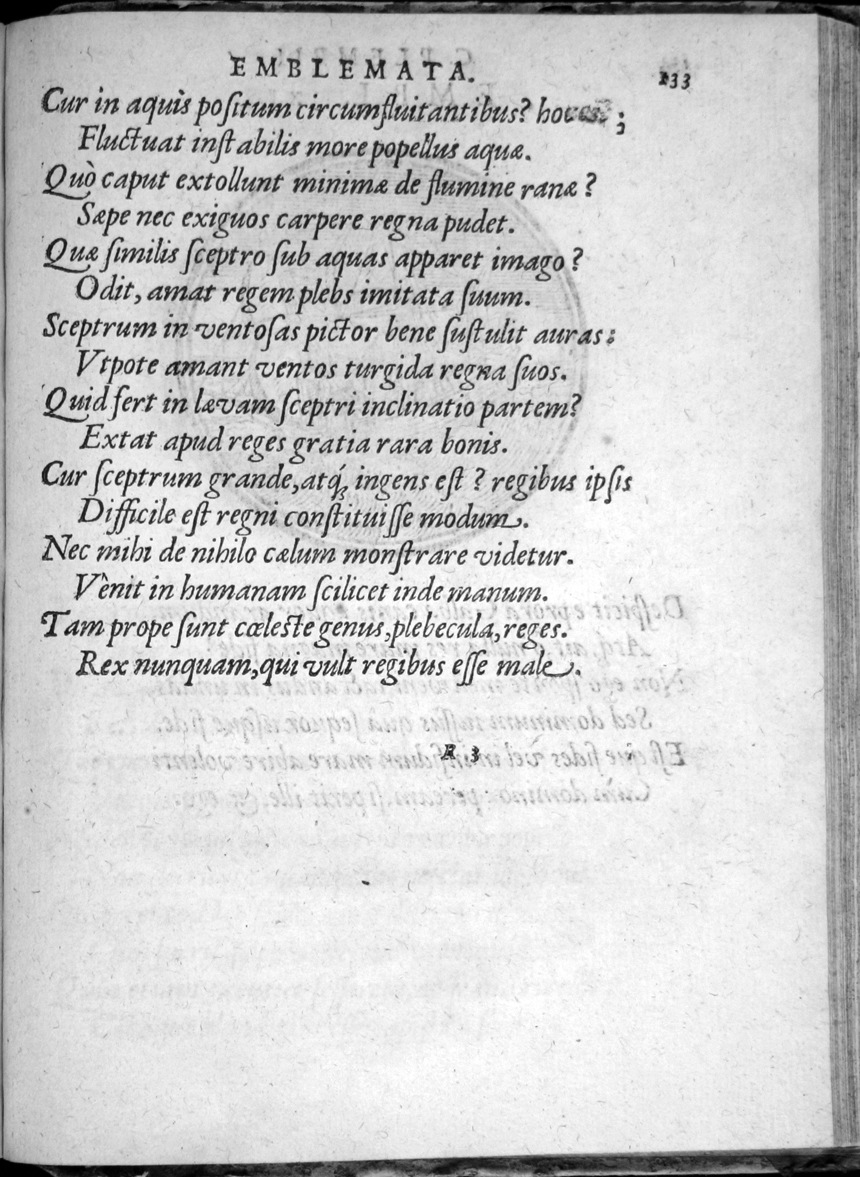 EMBLEMATA. 133
Cur in aquis poſitum circumfluitantibus?
Fluctuat inſtabilis more popellus aquæ.
Quò caput extollunt minimæ de flumine ranæ ?
Sæpe nec exiguos carpere regna pudet.
Quæ ſimilis ſceptro ſub aquas apparet imago ?
Odit, amat regem plebs imitata ſuum.
Sceptrum in ventoſas pictor bene ſuſtulit auras:
Vtpote amant ventos turgida regna ſuos.
Quid fert in lævam ſceptri inclinatio partem?
Extat apud reges gratia rara bonis.
Cur ſceptrum grande, atq́; ingens eſt ? regibus ipſis
Difficile eſt regni conſtituiſſe modum.
Nec mihi de nihilo cælum monſtrare videtur.
Vènit in humanam ſcilicet inde manum.
Tam prope ſunt cœleſte genus, plebecula, reges.
Rex nunquam, qui vult regibus eſſe male.
R 3